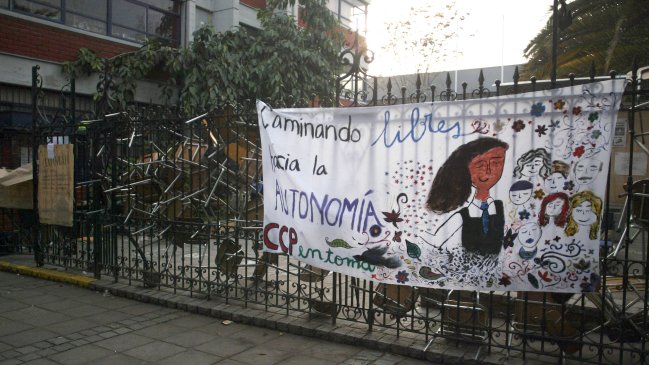 Caminando libres
hacia la
AUTONOMÍA
CCP en toma